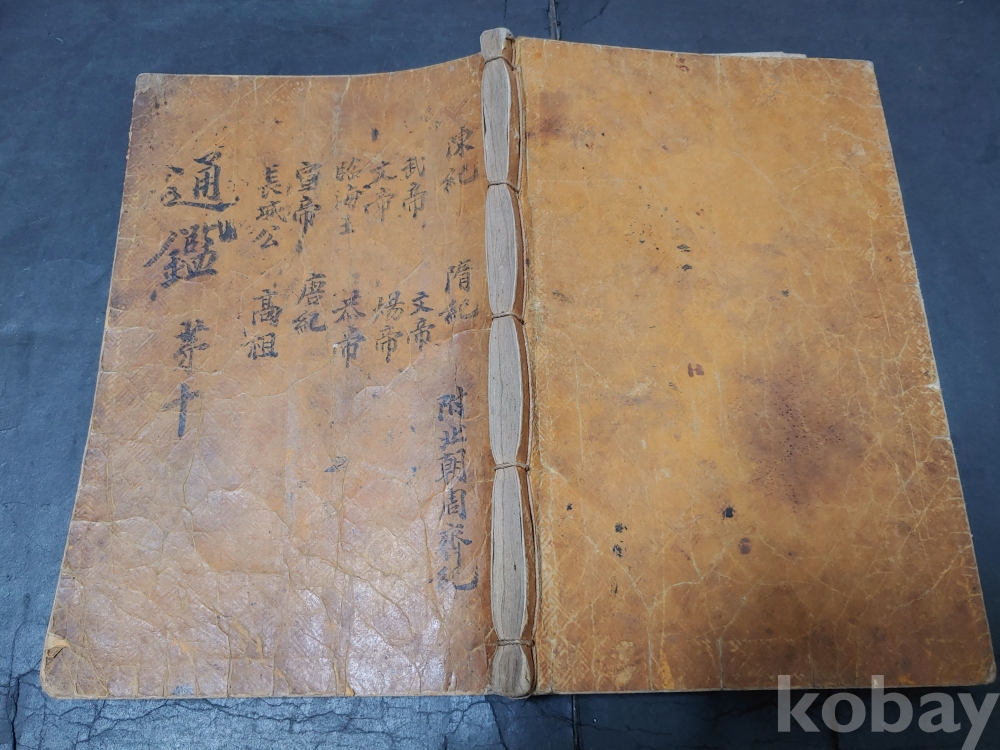 陳紀 隋紀 附北朝周齊紀
武帝 文帝
文帝 煬帝
臨海王 恭帝
宣帝 唐紀
長城公 高祖
通鑑 苐十
kobay